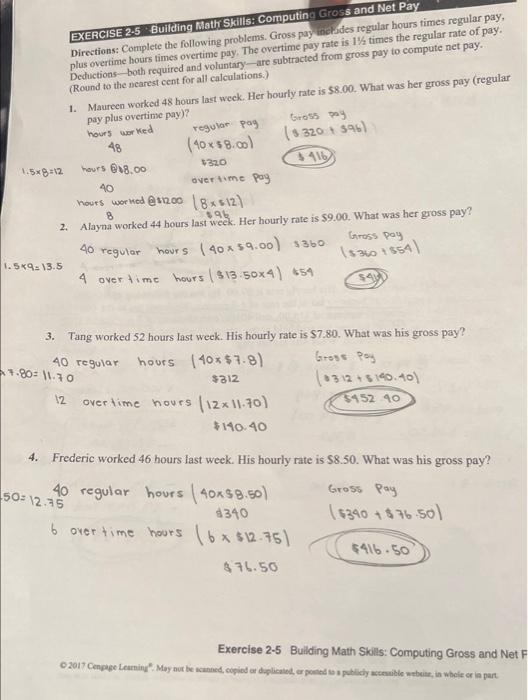 EXERCISE 2-5 Building Math Skills: Computing Gross and Net Pay
Directions: Complete the following problems. Gross pay includes regular hours times regular pay,
plus overtime hours times overtime pay. The overtime pay rate is 1½ times the regular rate of pay.
Deductions—both required and voluntary—are subtracted from gross pay to compute net pay.
(Round to the nearest cent for all calculations.)
1. Maureen worked 48 hours last week. Her hourly rate is $8.00. What was her gross pay (regular
pay plus overtime pay)?
hours worked regular pay Gross pay
48 (40x$8.00) ($320 + $96)
$320 $416
1.5x8=12 hours @$8.00
40 overtime pay
hours worked @$12.00 (8x$12)
8 $96
2. Alayna worked 44 hours last week. Her hourly rate is $9.00. What was her gross pay?
40 regular hours (40x$9.00) $360 Gross pay
($360+$54)
1.5x9=13.5
4 overtime hours ($13.50x4) $54
3. Tang worked 52 hours last week. His hourly rate is $7.80. What was his gross pay?
40 regular hours (40x$7.8) Gross Pay
7.80= 11.70 $312 ($312+$140.40)
12 overtime hours (12x11.70) $452.40
$140.40
4. Frederic worked 46 hours last week. His hourly rate is $8.50. What was his gross pay?
40 regular hours (40x$8.50) Gross Pay
.50= 12.75 $340 ($340 + $76.50)
6 overtime hours (6x $12.75) $416.50
$76.50
Exercise 2-5 Building Math Skills: Computing Gross and Net P
© 2017 Cengage Learning®. May not be scanned, copied or duplicated, or posted to a publicly accessible website, in whole or in part.